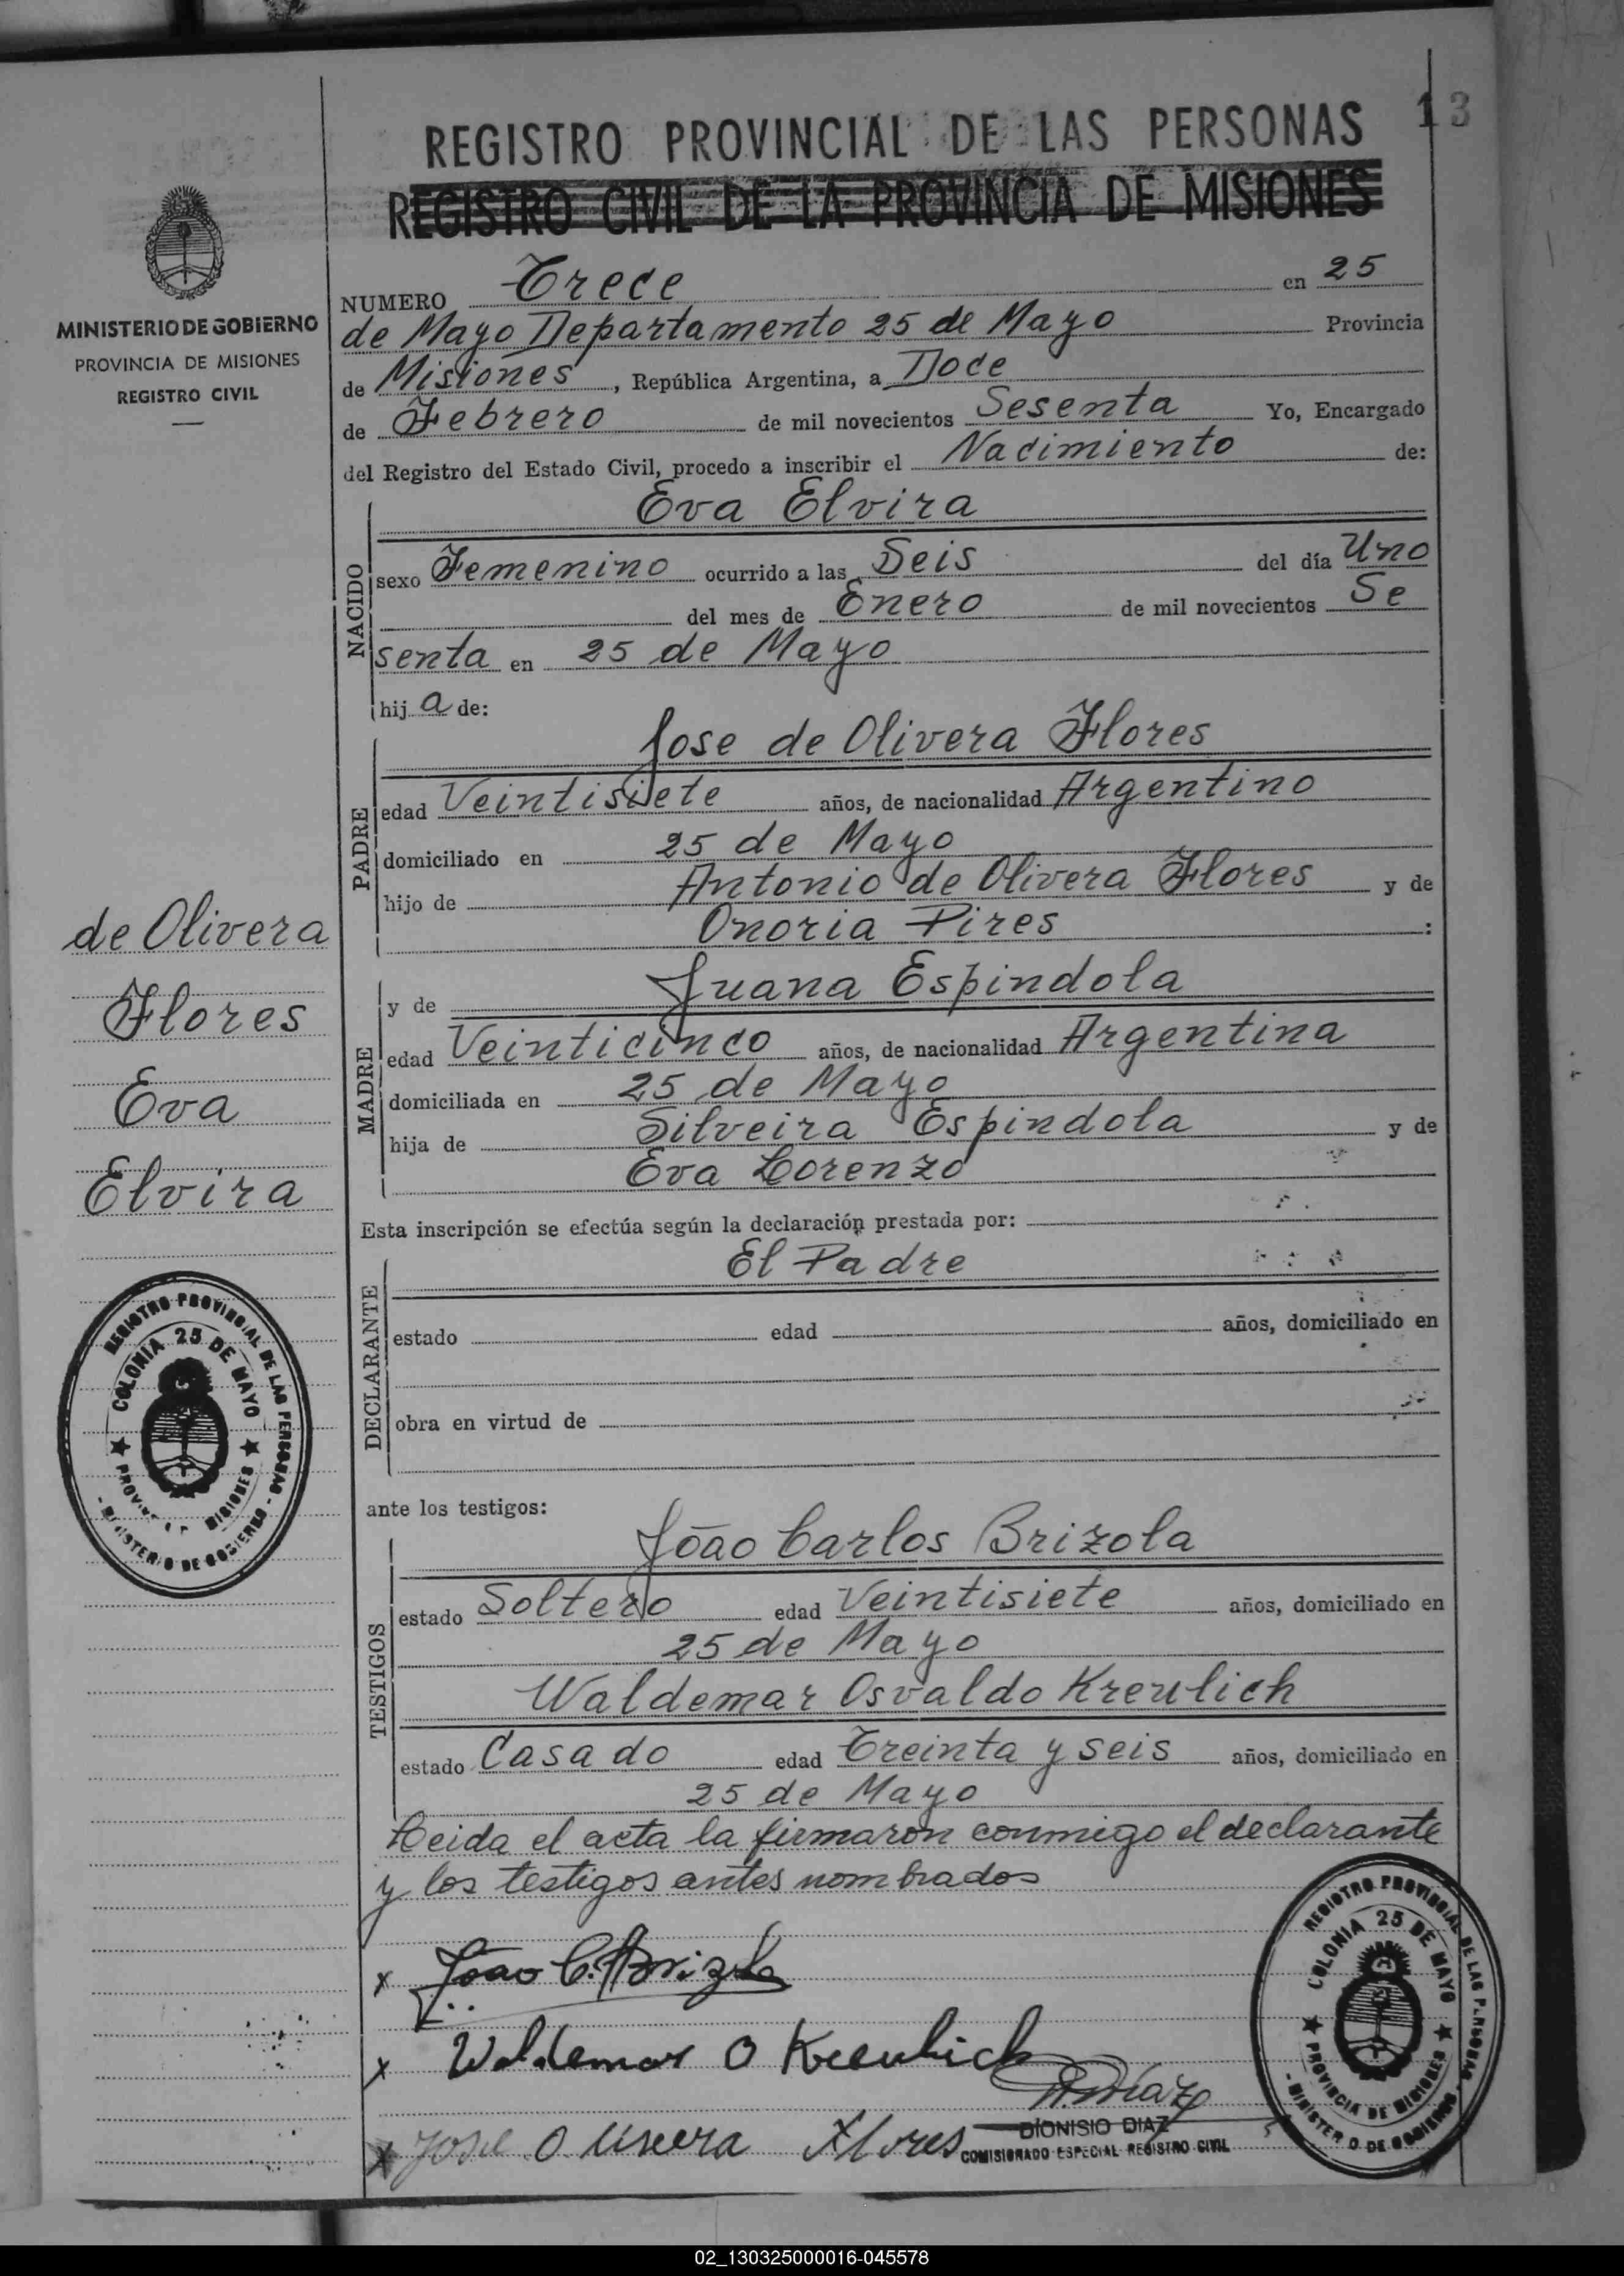 13
REGISTRO PROVINCIAL DE LAS PERSONAS
REGISTRO CIVIL DE LA PROVINCIA DE MISIONES
MINISTERIO DE GOBIERNO
PROVINCIA DE MISIONES
REGISTRO CIVIL
NUMERO Trece en 25
de Mayo Departamento 25 de Mayo Provincia
de Misiones, República Argentina, a Doce
de Febrero de mil novecientos Sesenta Yo, Encargado
del Registro del Estado Civil, procedo a inscribir el Nacimiento de:
NACIDO
Eva Elvira
sexo Femenino ocurrido a las Seis del día Uno
del mes de Enero de mil novecientos Se
senta en 25 de Mayo
hij a de:
PADRE
Jose de Olivera Flores
edad Veintisiete años, de nacionalidad Argentino
domiciliado en 25 de Mayo
hijo de Antonio de Olivera Flores y de
Onoria Pires :
MADRE
y de Juana Espindola
edad Veinticinco años, de nacionalidad Argentina
domiciliada en 25 de Mayo
hija de Silveira Espindola y de
Eva Lorenzo
de Olivera
Flores
Eva
Elvira
Esta inscripción se efectúa según la declaración prestada por:
DECLARANTE
El Padre
estado edad años, domiciliado en
obra en virtud de
REGISTRO PROVINCIAL DE LAS PERSONAS
COLONIA 25 DE MAYO
PROVINCIA DE MISIONES
- MINISTERIO DE GOBIERNO -
ante los testigos:
TESTIGOS
João Carlos Brizola
estado Soltero edad Veintisiete años, domiciliado en
25 de Mayo
Waldemar Osvaldo Kreulich
estado Casado edad Treinta y seis años, domiciliado en
25 de Mayo
Leida el acta la firmaron conmigo el declarante
y los testigos antes nombrados
x João C. Brizola
x Waldemar O Kreulich
D. Diaz
DIONISIO DIAZ
COMISIONADO ESPECIAL REGISTRO CIVIL
x Jose Olivera Flores
REGISTRO PROVINCIAL DE LAS PERSONAS
COLONIA 25 DE MAYO
PROVINCIA DE MISIONES
- MINISTERIO DE GOBIERNO -
02_130325000016-045578